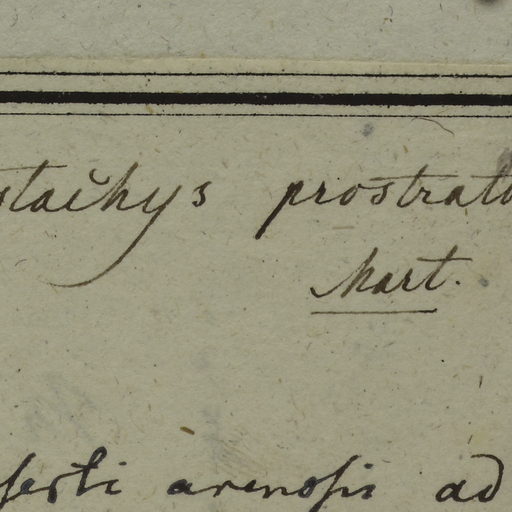 stachys prostrata
Mart.
serti arenosis ad